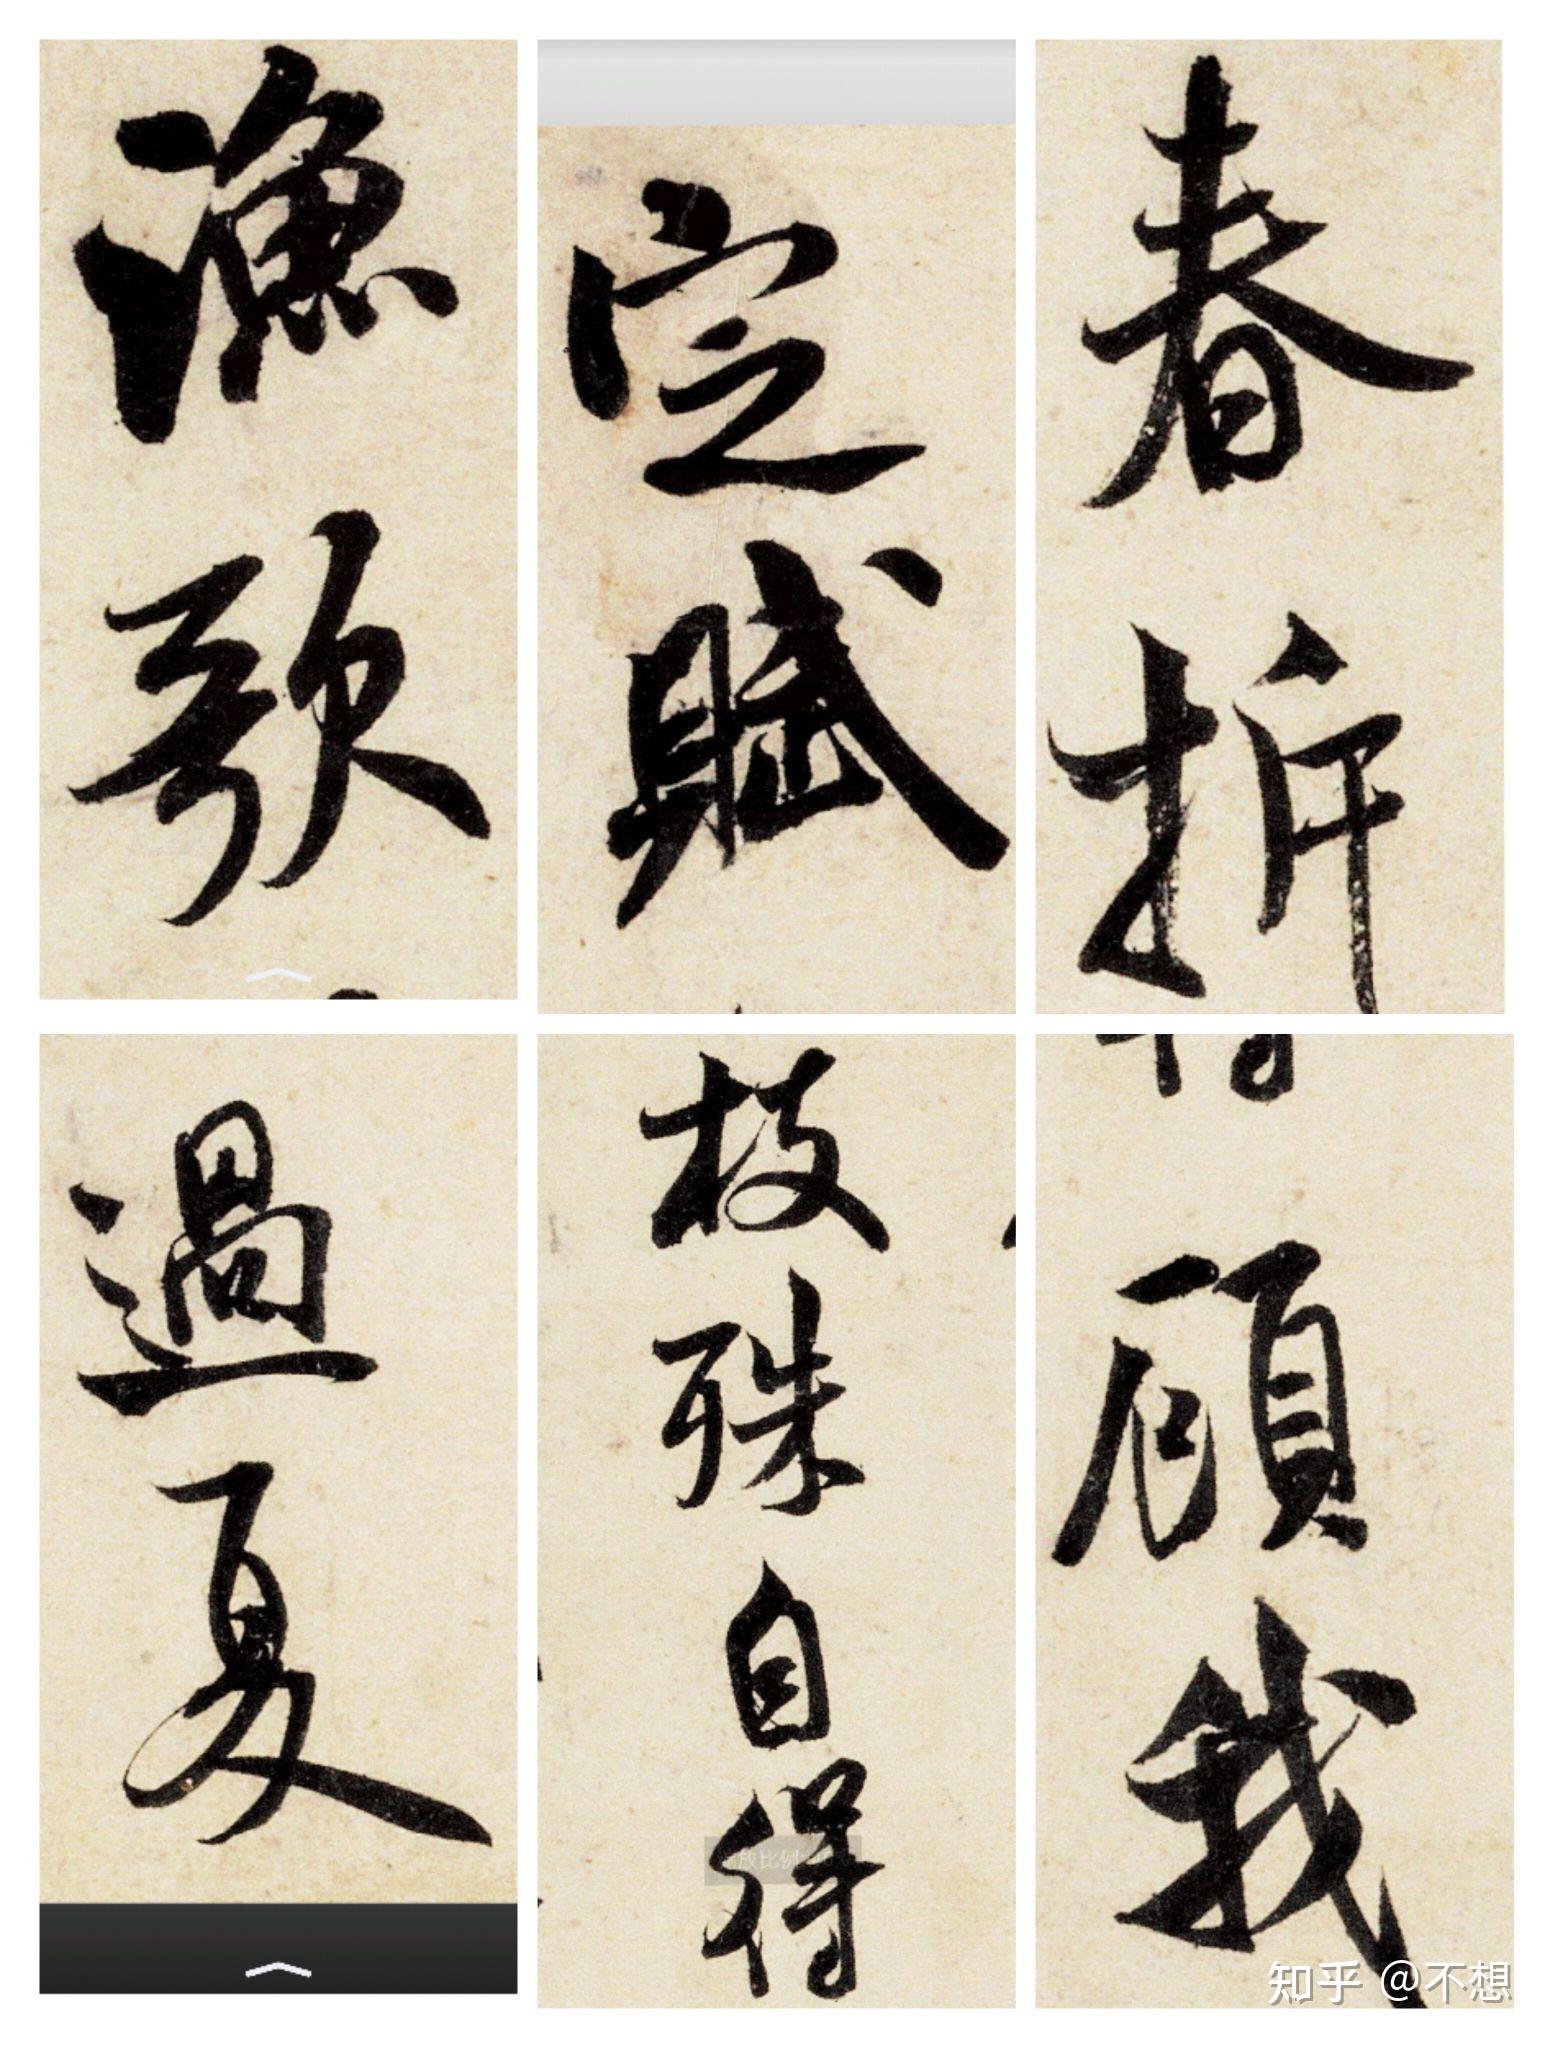 漁歌
定賦
春拆
過夏
枝殊自得
顧我
知乎 @不想